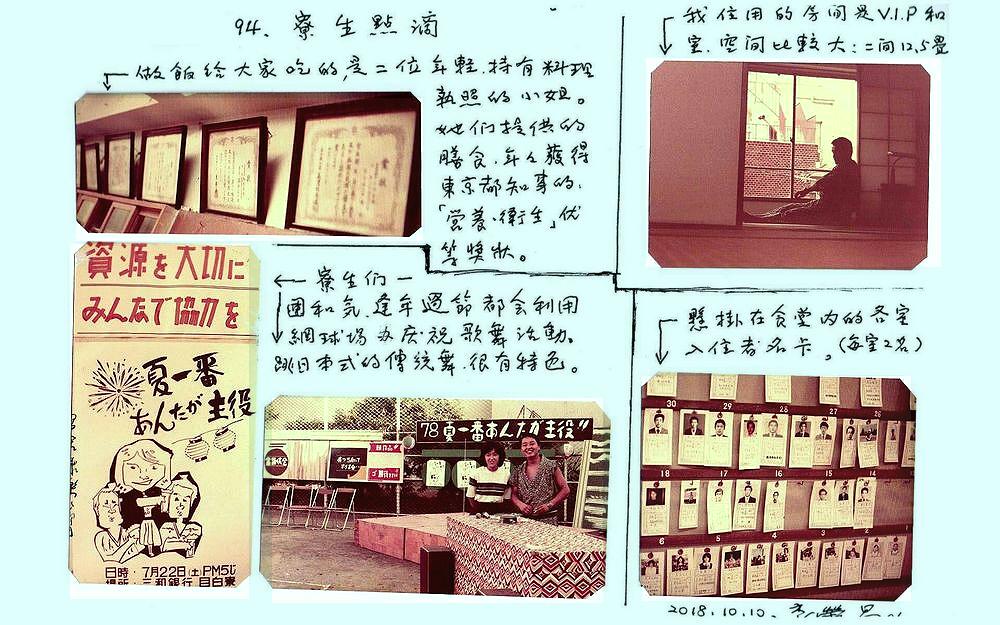 94. 寮生點滴
做飯給大家吃的,是二位年輕.持有料理
執照的小姐。
她们提供的
膳食.年々獲得
東京都知事的.
「营养·衛生」优
等獎狀。
我住用的房间是V.I.P和
室.空间比較大:二间12.5畳
賞状
資源を大切に
みんなで協力を
夏一番
あんたが主役
日時・7月22日(土)PM5じ
場所・三和銀行 目白寮
寮生们一
團和気.逢年過節都会利用
網球場办庆祝歌舞活動。
跳日本式的傳統舞.很有特色。
'78夏一番あんたが主役"
懸掛在食堂内的各室
入住者名卡。(每室2名)
30 29 28 27 26
18 17 16 15 14
6 5 4 3 2 1
2018.10.10.